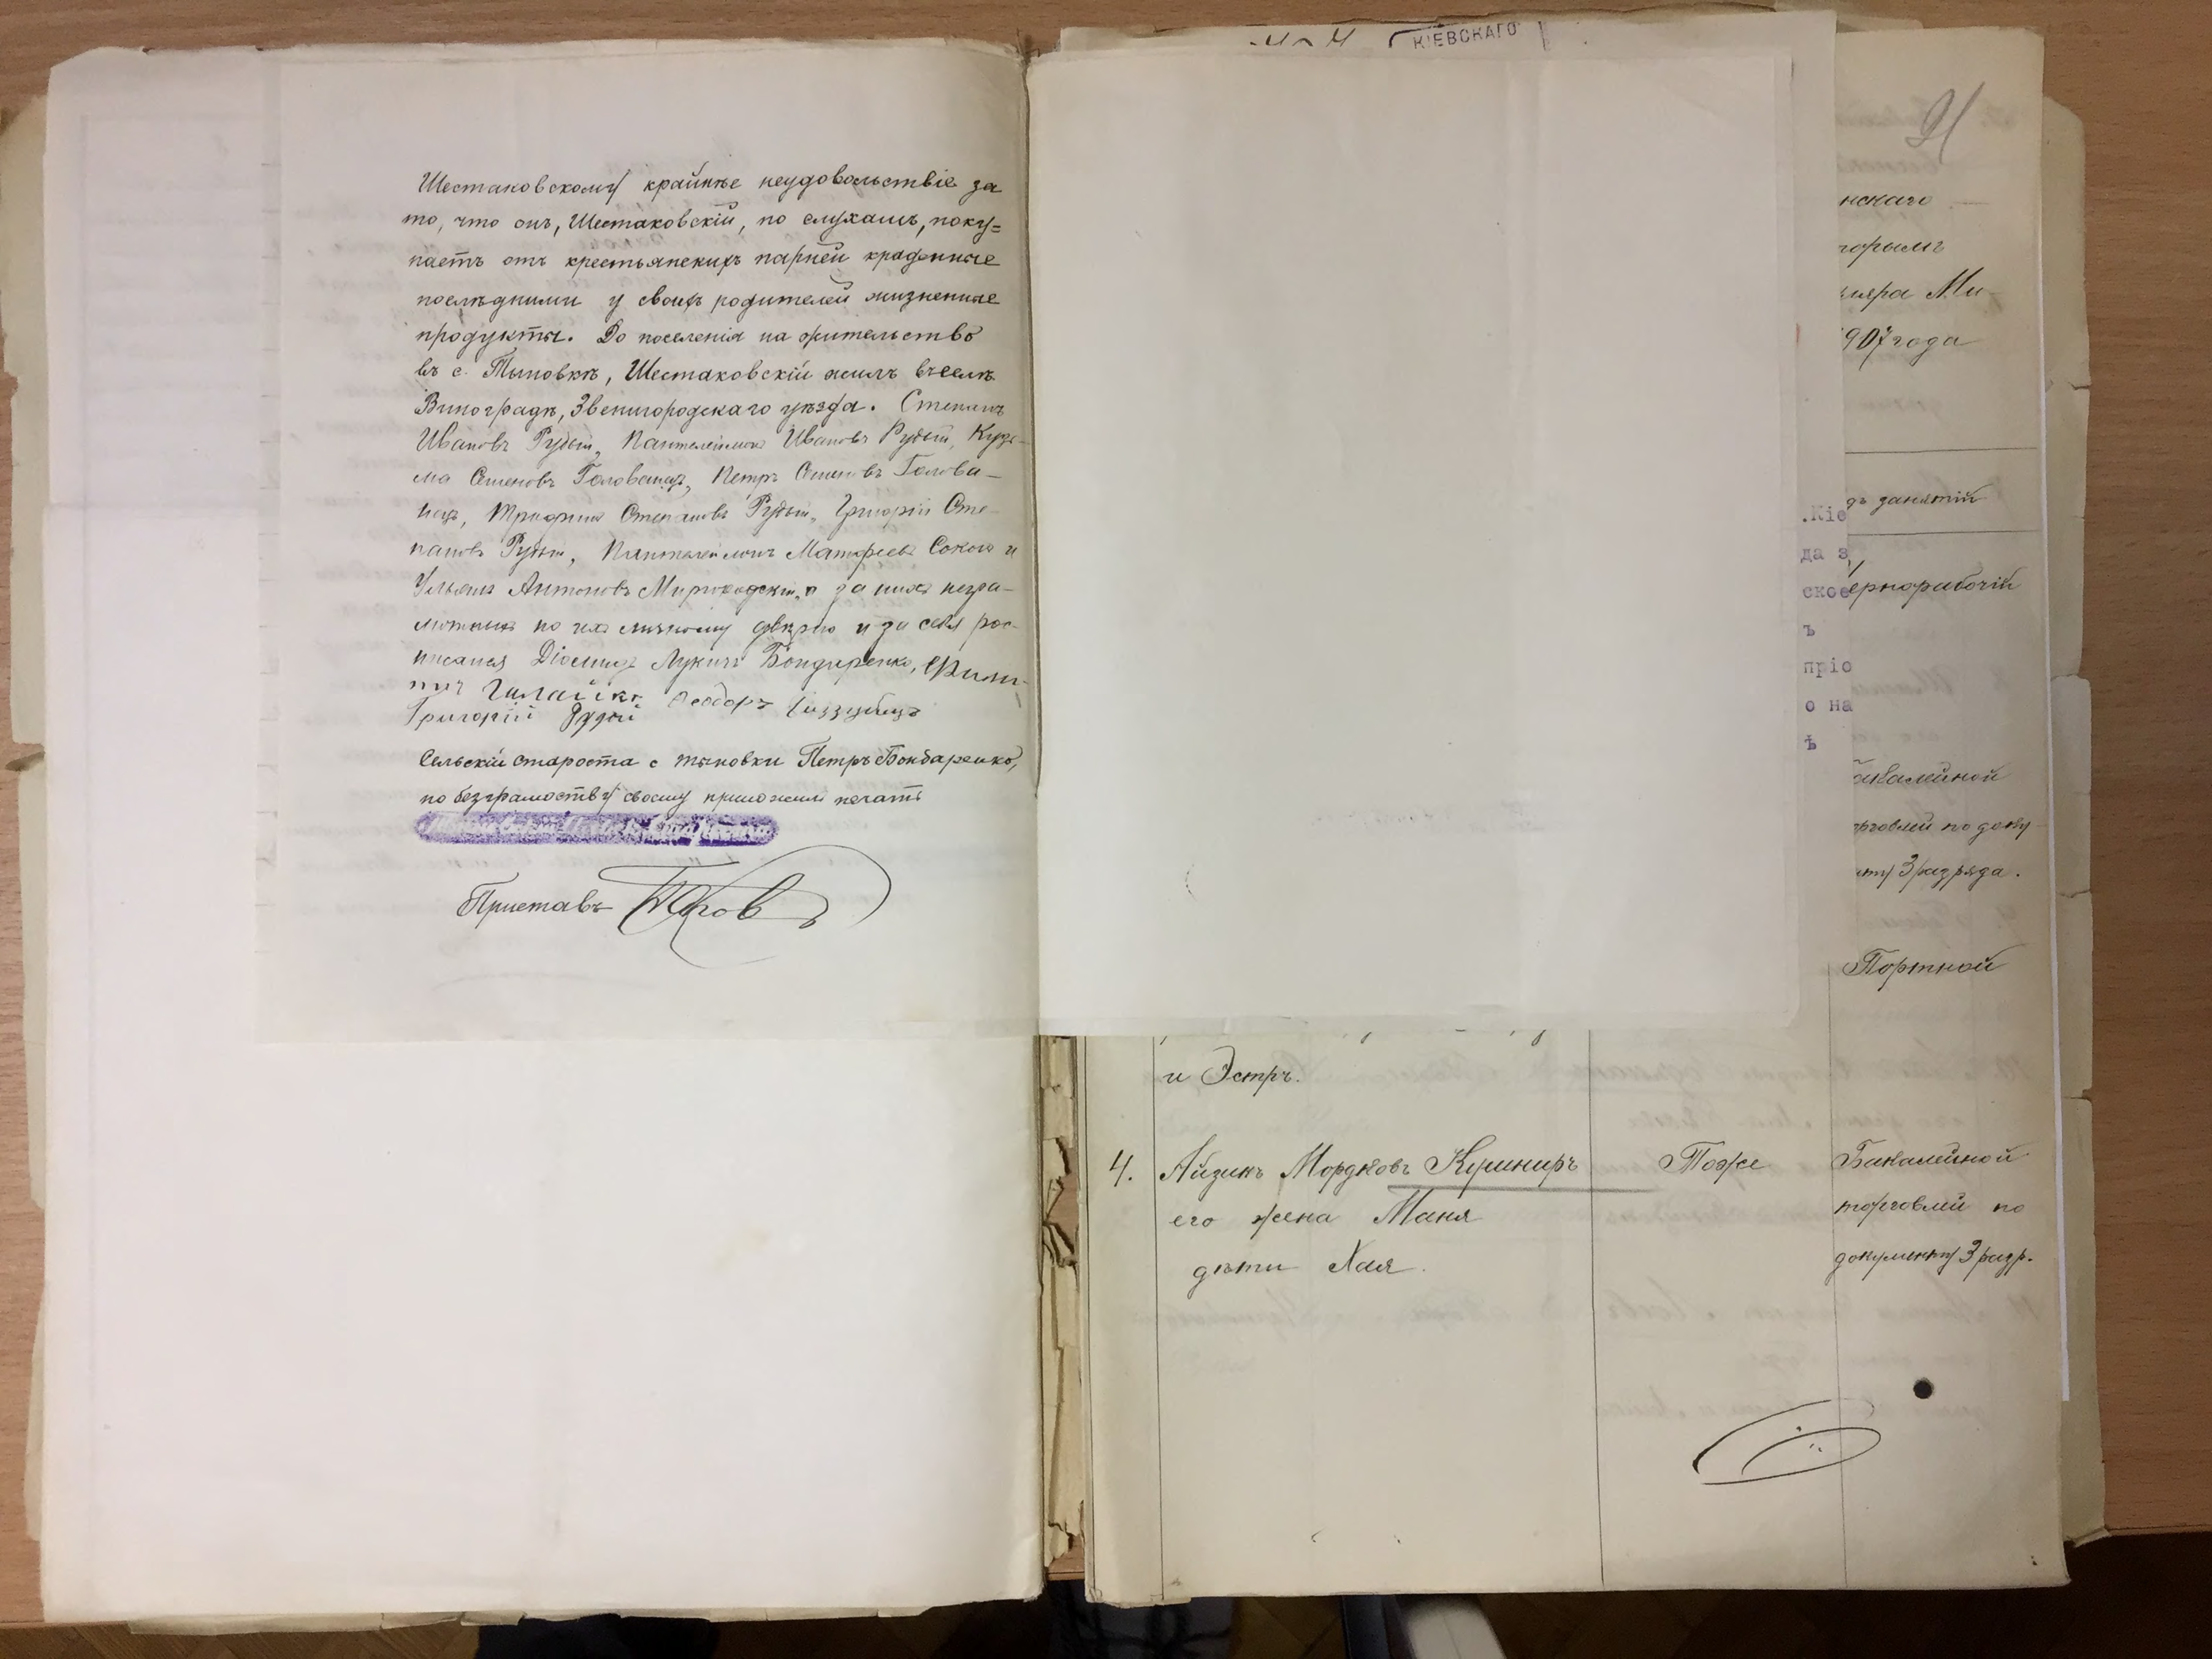 Шестаковскому крайнѣе неудовольствіе за
то, что онъ, Шестаковскій, по слухамъ, поку=
паетъ отъ крестьянскихъ парней краденные
послѣдними у своихъ родителей жизненные
продукты. До поселенія на жительство
въ с. Тыновкѣ, Шестаковскій жилъ въ селѣ
Виноградѣ, Звенигородскаго уѣзда. Степанъ
Ивановъ Рудый, Пантелеймонъ Ивановъ Рудый, Кузь-
ма Семеновъ Голованец, Петръ Семеновъ Голова-
нецъ, Трифонъ Степановъ Рудый, Григорій Сте-
пановъ Рудый, Пантелеймонъ Матфеевъ Сокол и
Ульянъ Антоновъ Миргородскій, а за нихъ негра-
мотныхъ по ихъ личному довѣрію и за себя рос-
писался Діомидъ Лукичъ Бондаренко, Фили-
Григорій Рудый Феодоръ
Сельскій староста с Тыновки Петръ Бондаренко,
по безграмотству своему приложилъ печать
Приставъ
КІЕВСКАГО
21
нскаго
торымъ
ляра Ми-
907 года
дъ занятій
.Кіе
да з
ское
ъ
пріо
о на
ѣ
ернорабочій
акалейной
рговлей по доку-
нту 3 разряда.
Портной
и Эстръ.
4. Айзикъ Мордковъ Кушниръ Тоже Бакалейной
его жена Маня торговлей по
дѣти Хая. документу 3 разр.